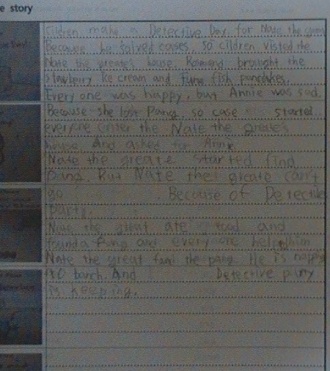 e story
Cildren make a Detective Day for Nate the
Because he solved cases, so cildren visited the
Nate the greates house. Rosmond braight the
Ice cream and fish pancakes.
Every one was happy, but Annie was sad.
Because she lost Pang. so case started
everyone enter the Nate the greates
house. And asked for Annie
Nate the greate started find
Pang. But Nate the greate can't
go Because of Detective
party.
Nate the great ate food and
found a Pang and everyone help him
Nate the great find the pang. He is happy
to And Detective
is keeping.